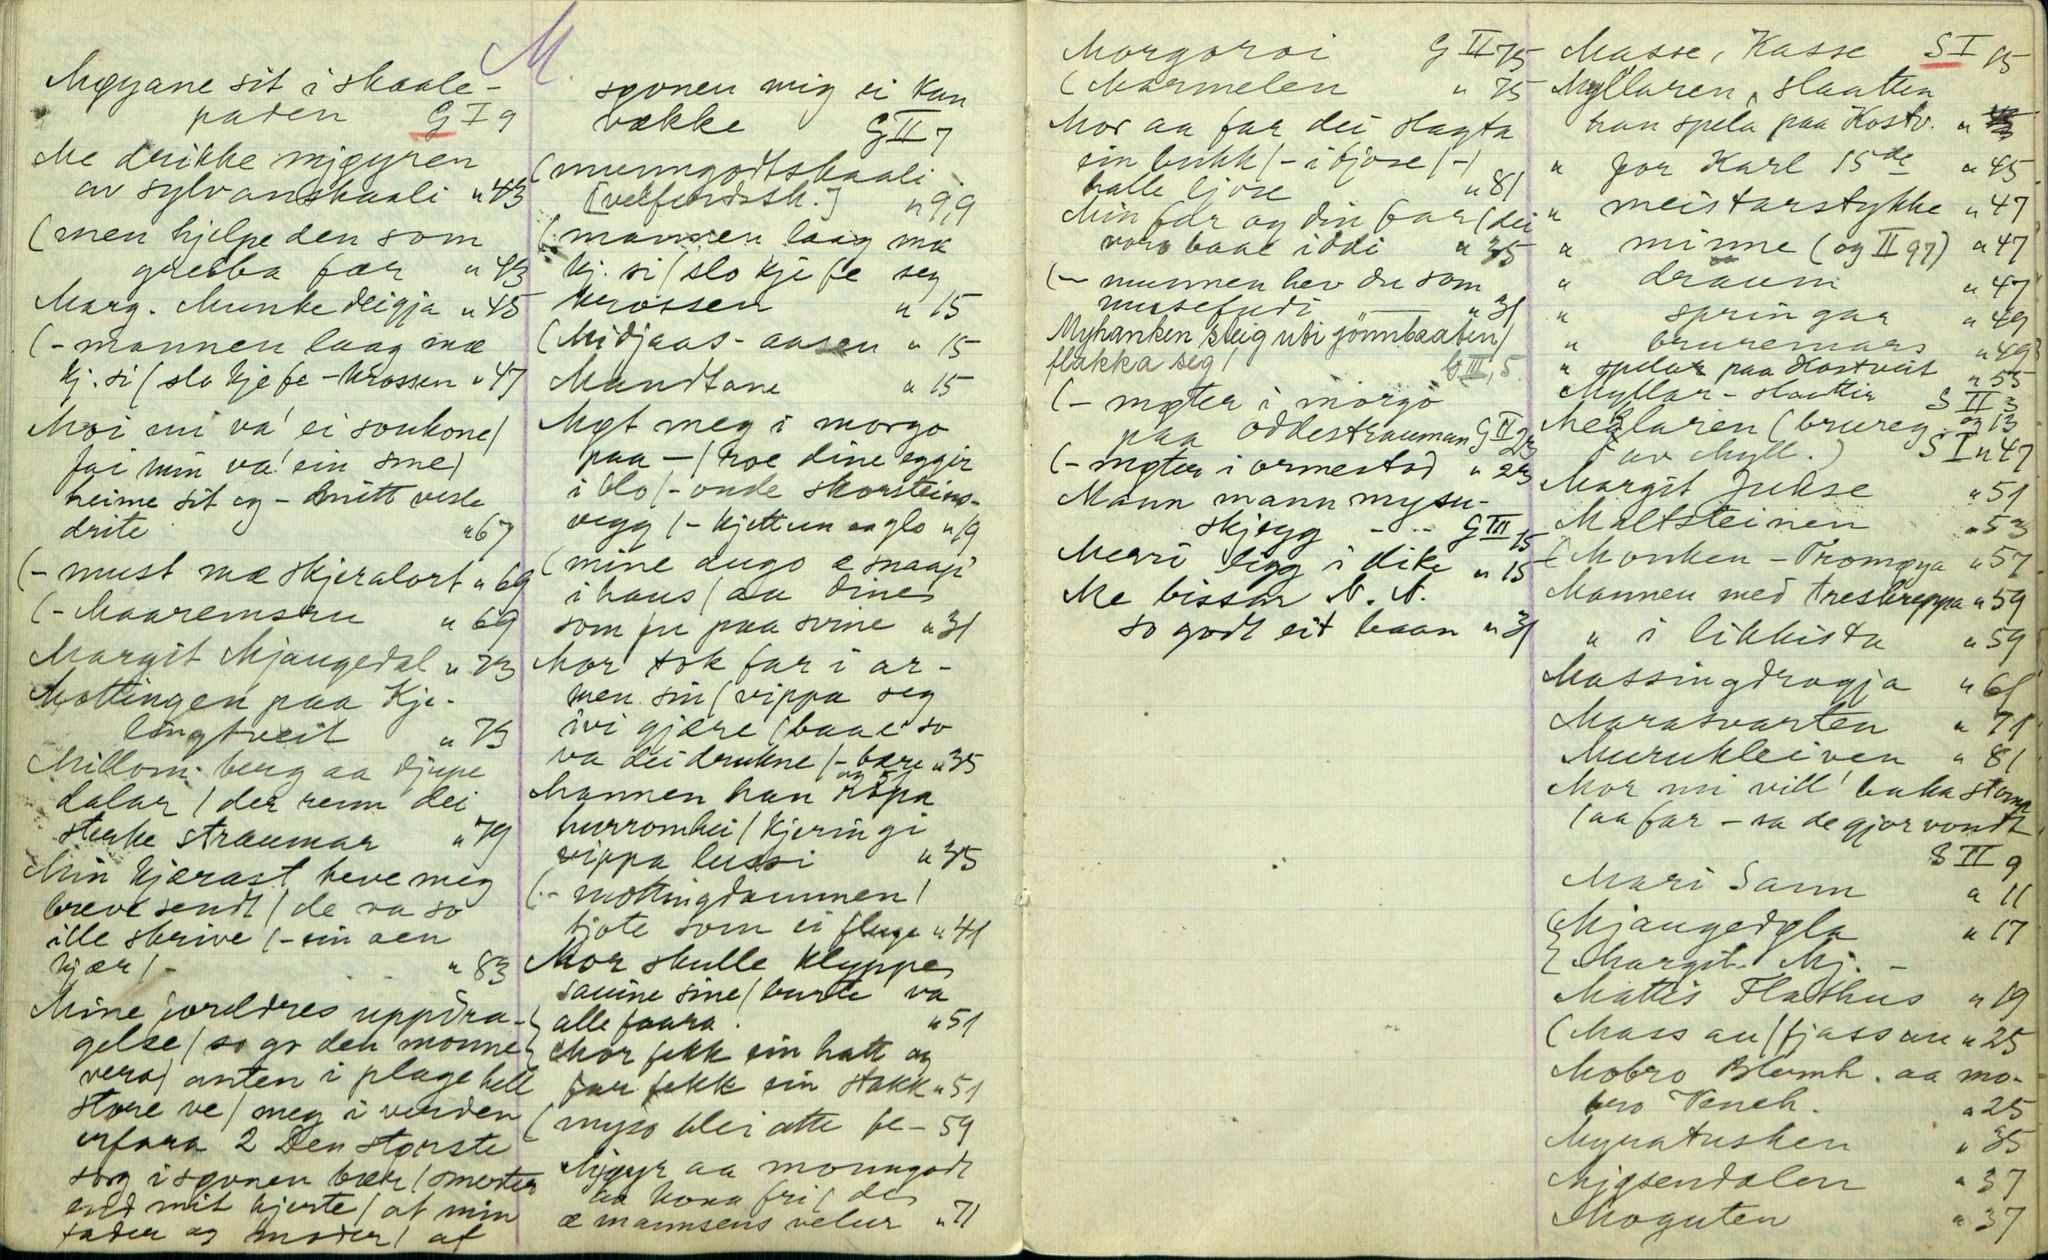 M.
Møyane sit i skaale-
paden G I 9
Me drikke mjøyren
av sylvanskaali " 43
(men hjelpe den som
greiba fær " 43
Marg. Munke deigja " 45
(- mannen laag mæ
kj. si / slo kje fe - krossen " 47
Moi mi va' ei soukone/
fai min va' ein sme/
heime sit eg - knitt vesle
drite "67
(- must mæ skjeralort " 69
(- Maaremsru " 69
Margit Mjaugedal " 73
Mottingen paa Kje-
lingtveit " 73
Millom berg aa djupe
dalar / der renn dei
sterke straumar " 79
Min kjærast heve meg
brevi sendt / de va so
ille skrive / - ein aen
kjær / - " 83
Mine foreldres uppdra-
gelse / so go den monne
vera / anten i plage hell
store ve / meg i verden
erfara 2 Den største
sorg i søvnen bær / smerter
end mit hjerte / at min
fader og moder / af
søvnen mig ei kan
vække G II 7
(munngodtskaali
[velferdssk.] " 9,9
(mannen laag mæ
kj. si / slo kje fe seg
krossen " 15
(Midjaas-aasen " 15
Mandtane " 15
Møt meg i morgo
paa - / roe dine eggir
i blo / - onde skorsteins-
vegg / - kjetten onglo " 19
(mine augo æ snaap'
i haus / aa dine
som fu paa svine " 31
Mor tok far i ar-
men sin / vippa seg
ivi gjære / baae so
va dei drukne / - bære " 35
Mannen han røpa
hurromhei / kjeringi
vippa lussi " 35
(- møttingdammen /
tjote som ei fluge " 41
Mor skulle klyppe
sauine sine / burte va
alle faara. " 51
Mor fekk ein hatt og
far fekk ein stakk " 51
(myso blei atte fe - 59
Mjøyr aa monngodt
aa kona fri / de
æ mannsens velur " 71
Morgoroi G II 75
(Marmelen " 75
Mor aa far dei slagta
ein bukk / - i fjose / -/
kalle ljose " 81
Min far og din far (dei
vora baae iddi " 35
(- munnen hev du som
musefudi " 31
Myhanken steig uti jönnbaaten/
flakka seg / G III, 5.
(- møter i morgo
paa Oddestrauman G II 23
(- møter i ormestad " 23
Mann mann mysu-
skjegg - .. G III 15
Merri ligg i dike " 15
Me bissar N. N.
so godt eit baan " 31
Masse, Kasse S I 15
Myllaren, slaatten
han spela paa Kostv. "
" for Karl 15de " 45
" meistarstykke " 47
" minne (og II 97) " 47
" draum " 47
" springar " 49
" bruremars " 49
" spelar paa Kostveit " 55
Myllar-slaattir S II 3
og 13
Meglaren (brureg.
av Myll.) S I " 47
Margit Jukse " 51
Maltsteinen " 53
(Monken - Tromøya " 57
Mannen med treskreppa " 59
" i likkista " 59
Massingdrogja " 61
Marasvarten " 71
Murukleiven " 81
Mor mi vill' baka stomp
/ aa far - sa de gjor vondt
S II 9
Mari Sann " 11
Mjaugedøla " 17
Margit Mj. -
Mattis Flathus " 19
(Mass au / fjass au " 25
Mobro Blomh. aa mo-
bro Veneh. " 25
Myratusken " 35
Mjøsendalen " 37
Moguten " 37